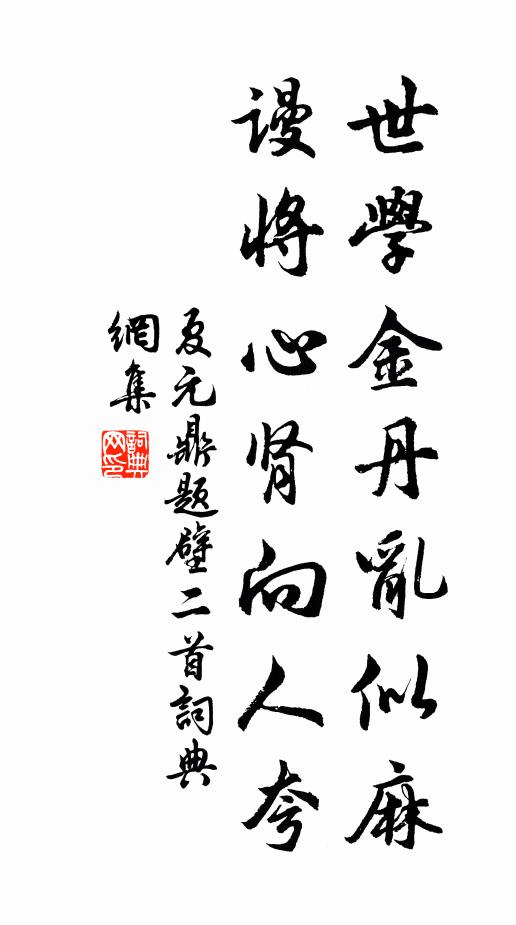 世學金丹亂似麻
謾將心腎向人夸
夏元鼎題壁二首詞典
網集
詞典
网印